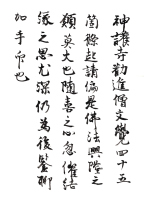 神護寺勧進僧文覺四十五
箇條起請偏是佛法興隆之
願莫大也随喜之心忽催結
縁之思尤深仍為後鑒聊
加手印也